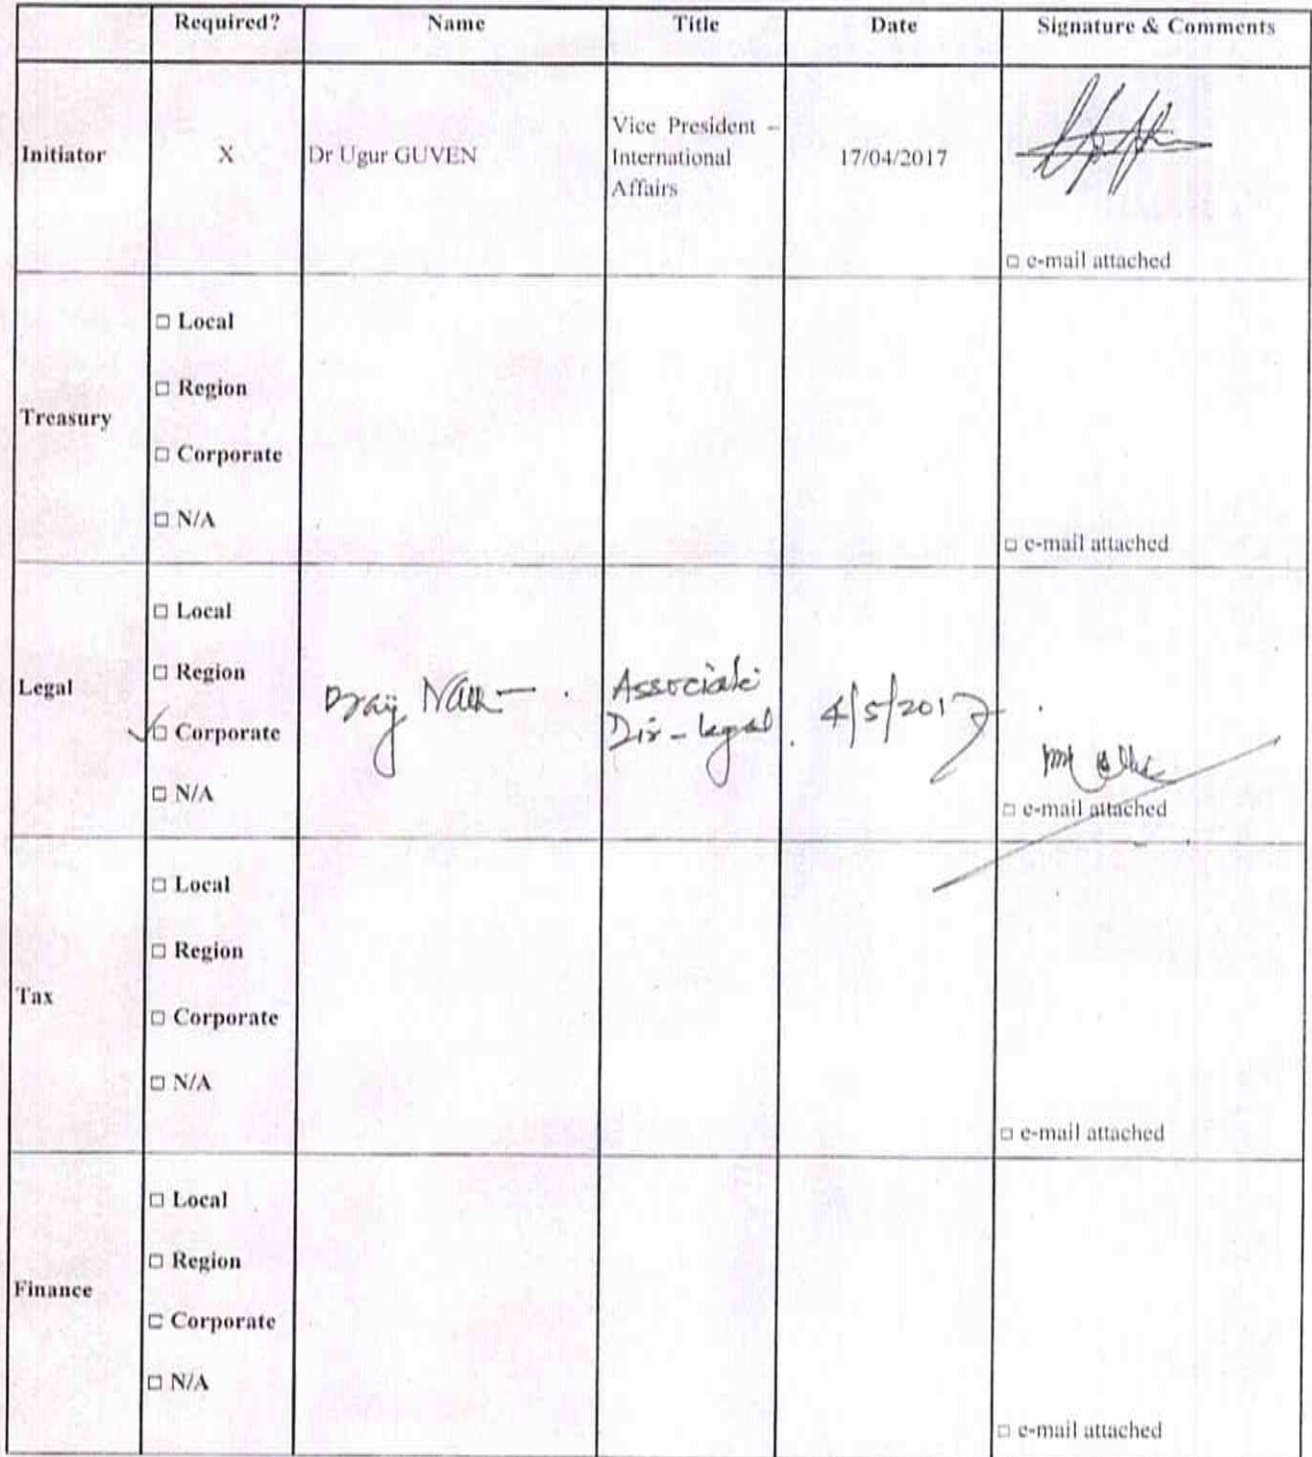 Required? Name Title Date Signature & Comments
Initiator X Dr Ugur GUVEN Vice President – International Affairs 17/04/2017
□ e-mail attached
Treasury
□ Local
□ Region
□ Corporate
□ N/A
□ e-mail attached
Legal
□ Local
□ Region
□ Corporate
□ N/A
Associate
Dir - legal
4/5/2017
□ e-mail attached
Tax
□ Local
□ Region
□ Corporate
□ N/A
□ e-mail attached
Finance
□ Local
□ Region
□ Corporate
□ N/A
□ e-mail attached